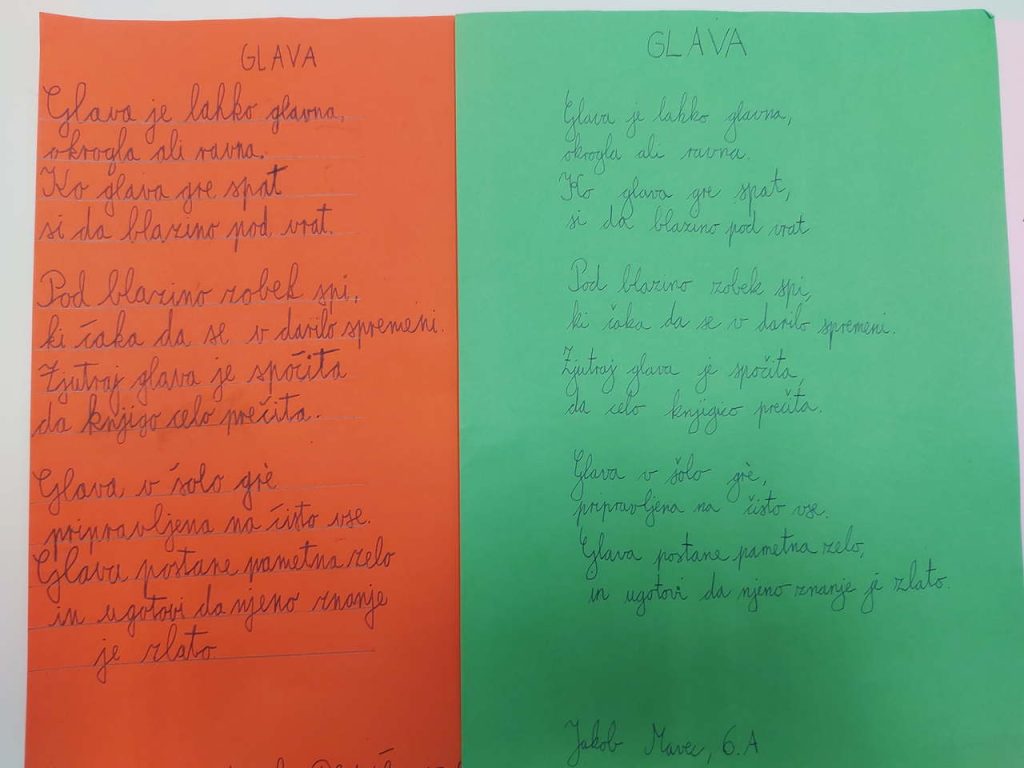 GLAVA
Glava je lahko glavna,
okrogla ali ravna.
Ko glava gre spat
si da blazino pod vrat.
Pod blazino zobek spi,
ki čaka da se v darilo spremeni.
Zjutraj glava je spočita
da knjigo celo prečita.
Glava v šolo grè
pripravljena na čisto vse.
Glava postane pametna zelo
in ugotovi da njeno znanje
je zlato
GLAVA
Glava je lahko glavna,
okrogla ali ravna.
Ko glava gre spat,
si da blazino pod vrat
Pod blazino zobek spi,
ki čaka da se v darilo spremeni.
Zjutraj glava je spočita,
da celo knjigico prečita.
Glava v šolo grè,
pripravljena na čisto vse.
Glava postane pametna zelo,
in ugotovi da njeno znanje je zlato.
Jakob Mavec, 6.A